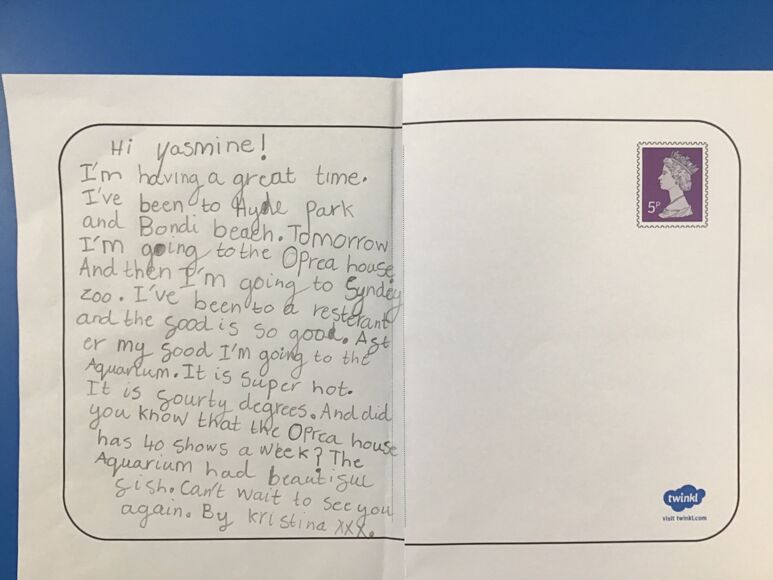 Hi Yasmine!
I'm having a great time.
I've been to Hyde Park
and Bondi beach. Tomorrow
I'm going to the Oprea house
And then I'm going to Syndey
zoo. I've been to a resterant
and the food is so good. Aft
er my food I'm going to the
Aquarium. It is super hot.
It is fourty degrees. And did
you know that the Oprea house
has 40 shows a week? The
Aquarium had beautiful
fish. Can't wait to see you
again. By Kristina xxx.
5P
twinkl
visit twinkl.com